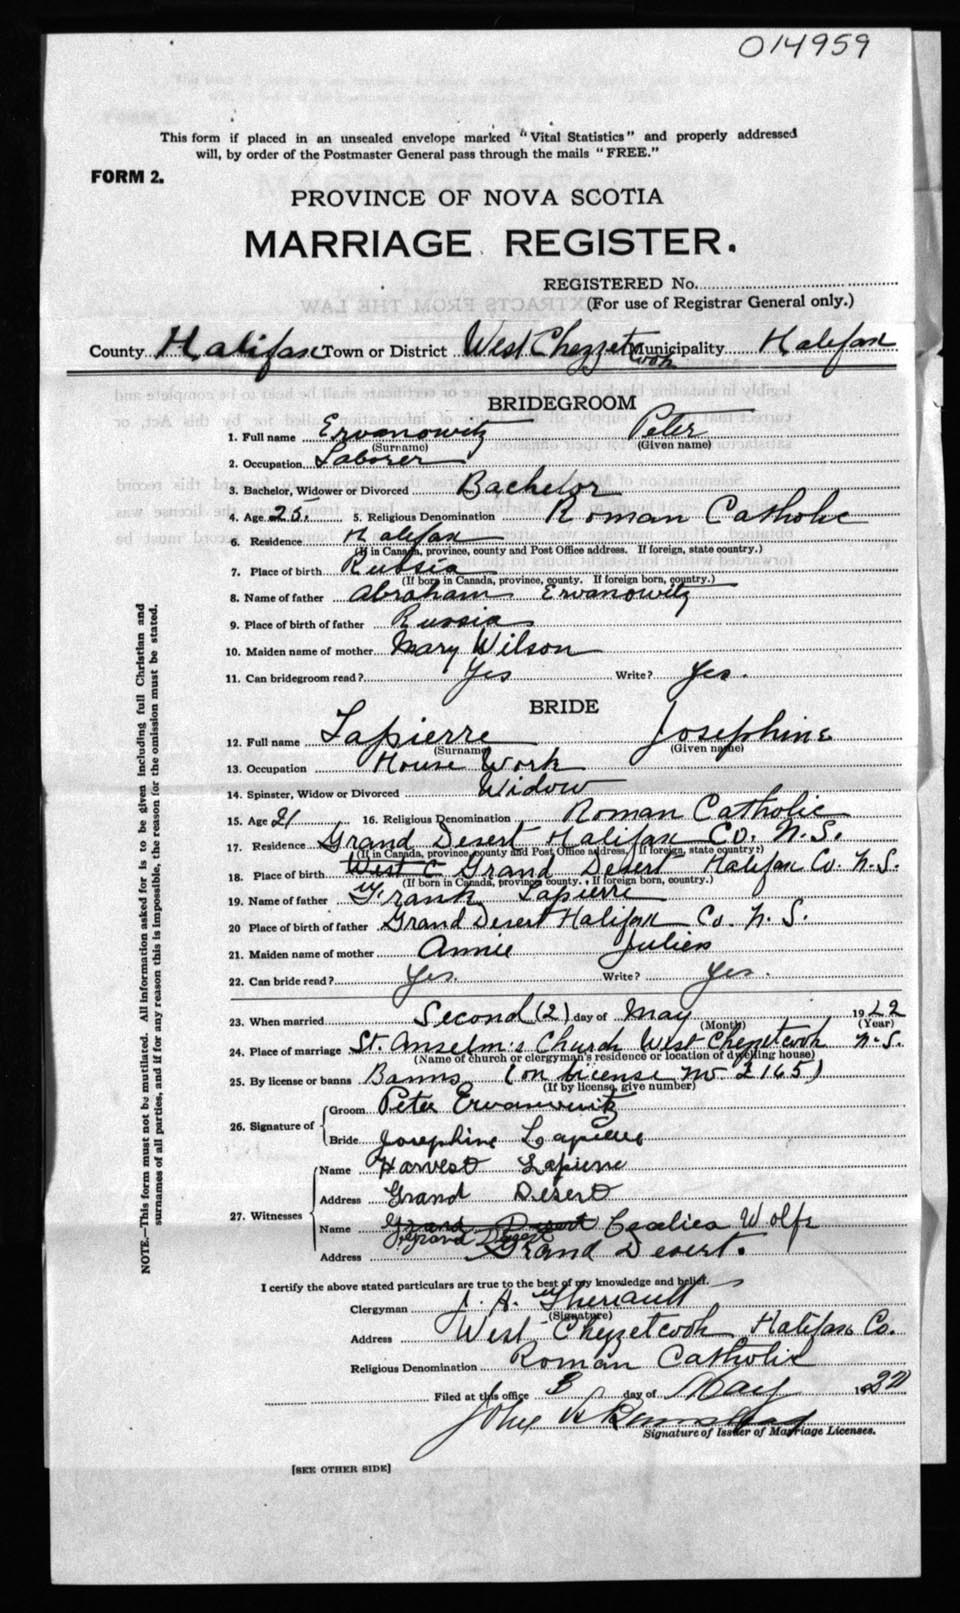 014959
This form if placed in an unsealed envelope marked "Vital Statistics" and properly addressed
will, by order of the Postmaster General pass through the mails "FREE."
FORM 2.
PROVINCE OF NOVA SCOTIA
MARRIAGE REGISTER.
REGISTERED No.
(For use of Registrar General only.)
County Halifax Town or District West Chezzetcook Municipality Halifax
BRIDEGROOM
1. Full name Ervanowitz Peter
(Surname) (Given name)
2. Occupation Laborer
3. Bachelor, Widower or Divorced Bachelor
4. Age 25. 5. Religious Denomination Roman Catholic
6. Residence Halifax
(If in Canada, province, county and Post Office address. If foreign, state country.)
7. Place of birth Russia
(If born in Canada, province, county. If foreign born, country.)
8. Name of father Abraham Ervanowitz
9. Place of birth of father Russia
10. Maiden name of mother Mary Wilson
11. Can bridegroom read? Yes Write? Yes.
BRIDE
12. Full name Lapierre Josephine
(Surname) (Given name)
13. Occupation House Work
14. Spinster, Widow or Divorced Widow
15. Age 21 16. Religious Denomination Roman Catholic
17. Residence Grand Desert Halifax Co. N.S.
(If in Canada, province, county and Post Office address. If foreign, state country.)
18. Place of birth West C Grand Desert Halifax Co N.S.
(If born in Canada, province, county. If foreign born, country.)
19. Name of father Frank Lapierre
20 Place of birth of father Grand Desert Halifax Co N. S.
21. Maiden name of mother Annie Julien
22. Can bride read? Yes. Write? Yes.
23. When married Second (2) day of May 1922
(Month) (Year)
24. Place of marriage St. Anselm's Church West Chezetcook N.S.
(Name of church or clergyman's residence or location of dwelling house)
25. By license or banns Banns (on license No 2165)
(If by license, give number)
26. Signature of Groom Peter
Bride Josephine Lapierre
27. Witnesses Name Harvest Lapierre
Address Grand Desert
Name Grand Desert Cecelia Wolfe
Grand Desert
Address Grand Desert.
I certify the above stated particulars are true to the best of my knowledge and belief.
Clergyman J. A. Theriault
(Signature)
Address West Chezzetcook Halifax Co.
Religious Denomination Roman Catholic
Filed at this office 3 day of May 1922
John
Signature of Issuer of Marriage Licenses.
[SEE OTHER SIDE]
NOTE.—This form must not be mutilated. All information asked for is to be given including full Christian and
surnames of all parties, and if for any reason this is impossible, the reason for the omission must be stated.